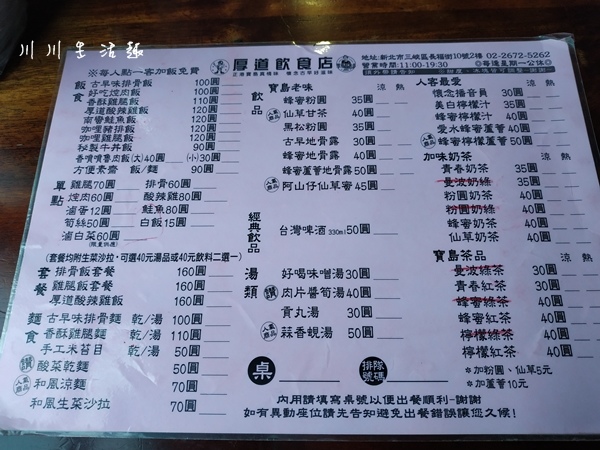 川川生活趣
厚道飲食店
正港寶島真情味 懷念古早好滋味
地址:新北市三峽區長福街10號2樓 02-2672-5262
營業時間:11:00-19:30 ◎每週星期一公休◎
※每人點一客加飯免費
飯食
古早味排骨飯 100圓
好吃焢肉飯 100圓
香酥雞腿飯 100圓
厚道酸辣雞飯 100圓
南蜜鮭魚飯 100圓
咖哩豬排飯 100圓
咖哩雞腿飯 100圓
秘製牛丼飯 90圓
香噴噴魯肉飯(大)40圓 (小)30圓
方便素齋 飯/麵 90圓
單點
雞腿70圓 排骨60圓
焢肉60圓 酸辣雞80圓
滷蛋12圓 鮭魚80圓
筍絲50圓 白飯15圓
滷白菜60圓
(限量供應)
(套餐均附生菜沙拉,可選40元湯品或40元飲料二選一)
套餐
排骨飯套餐 160圓
雞腿飯套餐 160圓
厚道酸辣雞飯 160圓
麵食
古早味排骨麵 乾/湯 100圓
香酥雞腿麵 乾/湯 110圓
手工米苔目 乾/湯 50圓
讚 酸菜乾麵 50圓
人氣商品 和風涼麵 70圓
和風生菜沙拉 70圓
飲品
寶島老味 涼 熱
蜂蜜粉圓 35圓
人氣商品 仙草甘茶 40圓
黑松粉圓 35圓
古早地骨露 40圓
蜂蜜地骨露 50圓
蜂蜜蘆薈地骨露 50圓
人氣商品 阿山仔仙草蜜 45圓
經典飲品
台灣啤酒330ml 50圓
湯類
好喝味噌湯 30圓
讚 肉片醬筍湯 40圓
貢丸湯 30圓
人氣商品 蒜香蜆湯 50圓
桌 排隊號碼
人客最愛 涼 熱
懷念播音員 30圓
美白檸檬汁 35圓
蜂蜜檸檬汁 40圓
愛水蜂蜜蘆薈 40圓
人氣商品 蜂蜜檸檬蘆薈 50圓
加味奶茶 涼 熱
青春奶茶 35圓
曼波奶綠 35圓
粉圓奶茶 40圓
粉圓奶綠 40圓
蜂蜜奶茶 45圓
仙草奶茶 40圓
寶島茶品 涼 熱
曼波綠茶 30圓
青春紅茶 30圓
蜂蜜綠茶 40圓
蜂蜜紅茶 40圓
檸檬綠茶 40圓
檸檬紅茶 40圓
*加粉圓、仙草5元
*加蘆薈10元
內用請填寫桌號以便出餐順利-謝謝
如有異動座位請先告知避免出餐錯誤讓您久候!